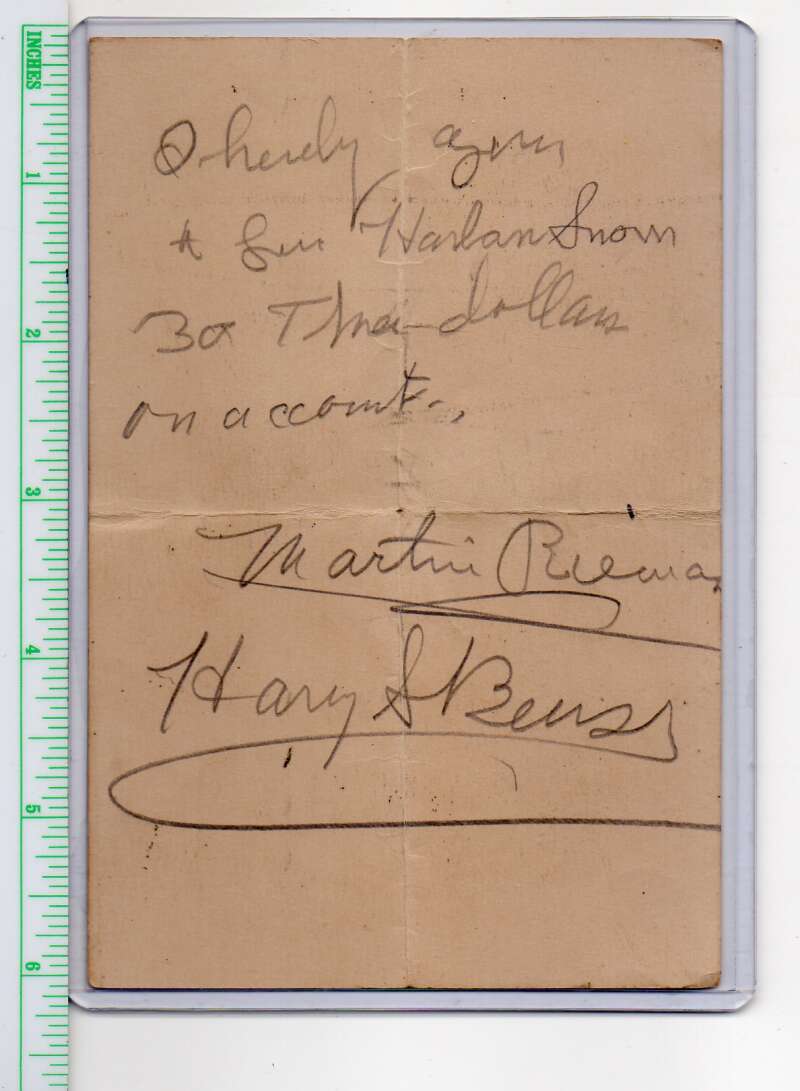 INCHES
1
2
3
4
5
6
I hereby agree
to give Harlan Snow
30 dollars
on account.
Martin
Harry S